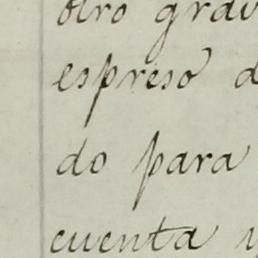 otro grav
espreso d
do para
cuenta y